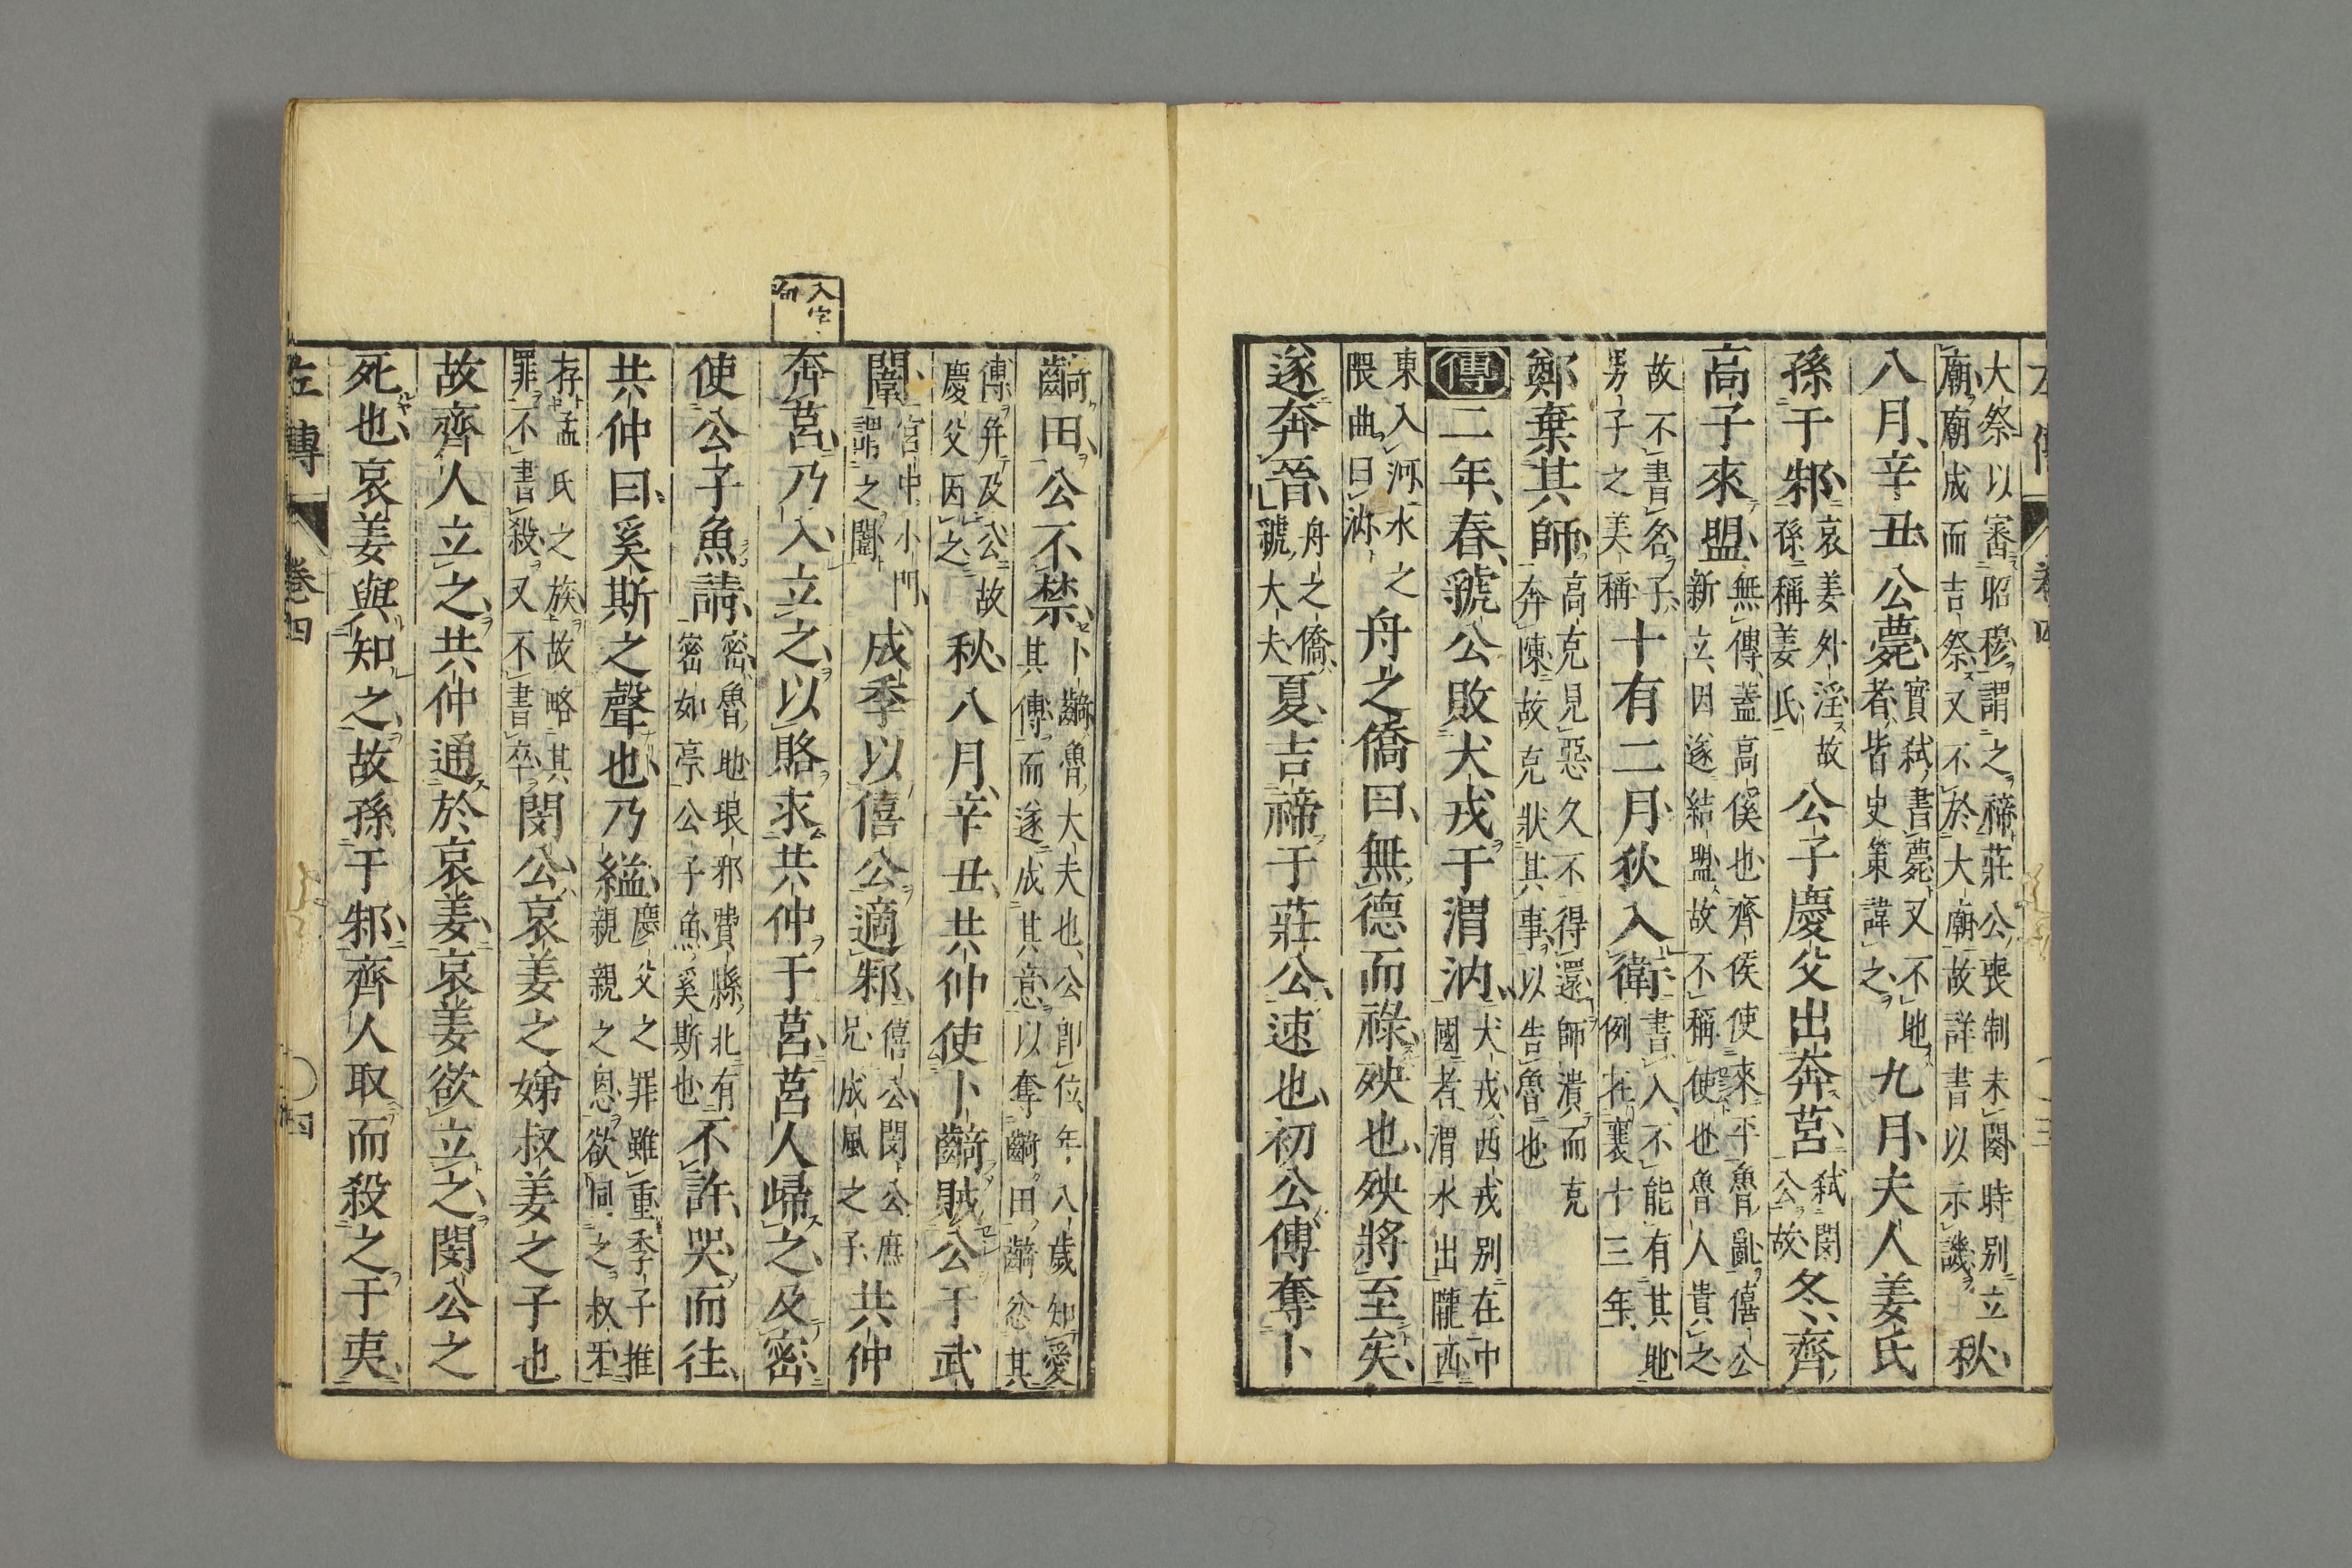 大祭以審昭穆謂之禘莊公喪制未闋時别立
廟廟成而吉祭又不於大廟故詳書以示譏
秋
八月辛丑公薨
實弑書薨又不地
者皆史策諱之
九月夫人姜氏
孫于邾
哀姜外淫故
孫稱姜氏
公子慶父出奔莒
弑閔
公故
冬齊
高子來盟
無傳蓋高傒也齊侯使來平魯亂僖公
新立因遂結盟故不稱使也魯人貴之
故不書名子
男子之美稱
十有二月狄入衛
書入不能有其地
例在襄十三年
鄭棄其師
高克見惡久不得還師潰而克
奔陳故克狀其事以告魯也
傳二年春虢公敗犬戎于渭汭
犬戎西戎别在中
國者渭水出隴西
東入河水之
隈曲曰汭
舟之僑曰無德而祿殃也殃將至矣
遂奔晉
舟之僑
虢大夫
夏吉禘于莊公速也初公傳奪卜
齮田公不禁
卜齮魯大夫也公即位年八歲知愛
其傳而遂成其意以奪齮田齮忿其
傳并及公故
慶父因之
秋八月辛丑共仲使卜齮賊公于武
闈
宮中小門
謂之闈
成季以僖公適邾
僖公閔公庶
兄成風之子
共仲
入字
句
奔莒乃入立之以賂求共仲于莒莒人歸之及密
使公子魚請
密魯地琅邪費縣北有
密如亭公子魚奚斯也
不許哭而往
共仲曰奚斯之聲也乃縊
慶父之罪雖重季子推
親親之恩欲同之叔牙
存孟氏之族故略其
罪不書殺又不書卒
閔公哀姜之娣叔姜之子也
故齊人立之共仲通於哀姜哀姜欲立之閔公之
死也哀姜與知之故孫于邾齊人取而殺之于夷
左傳
卷四
四